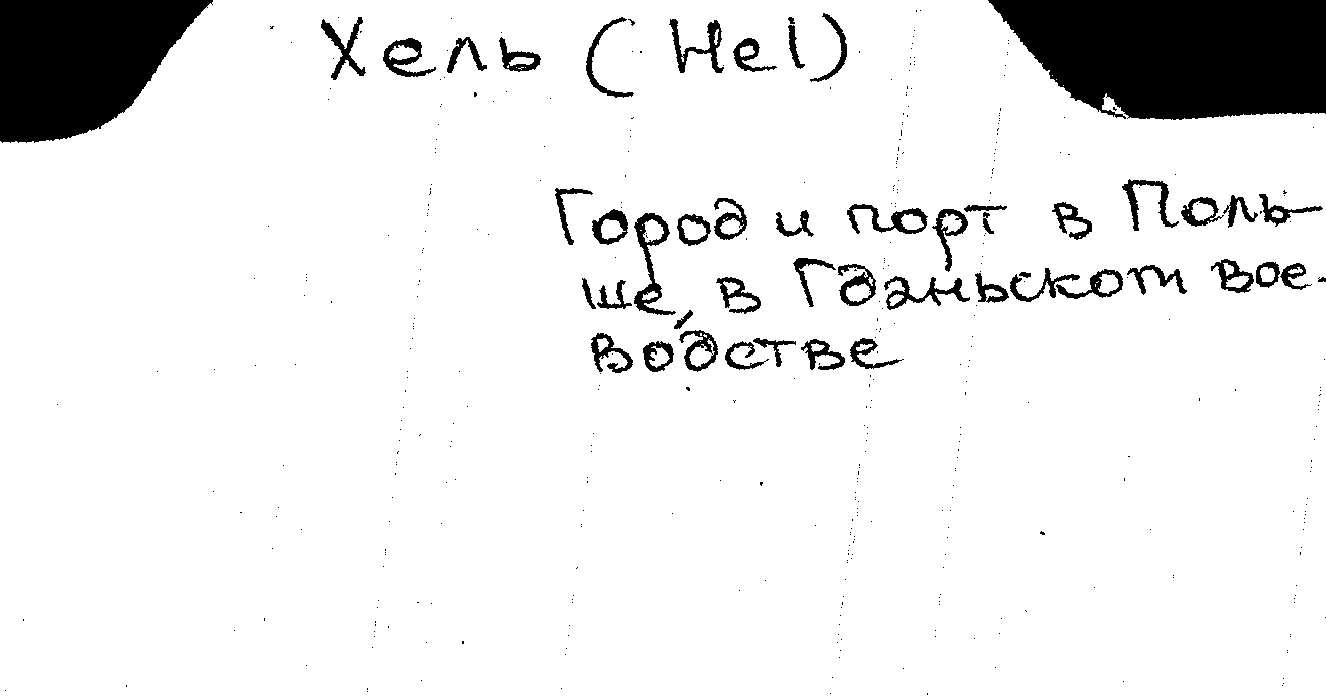 Хель (Hel)
Город и порт в Поль-
ше, в Гданьском вое-
водстве